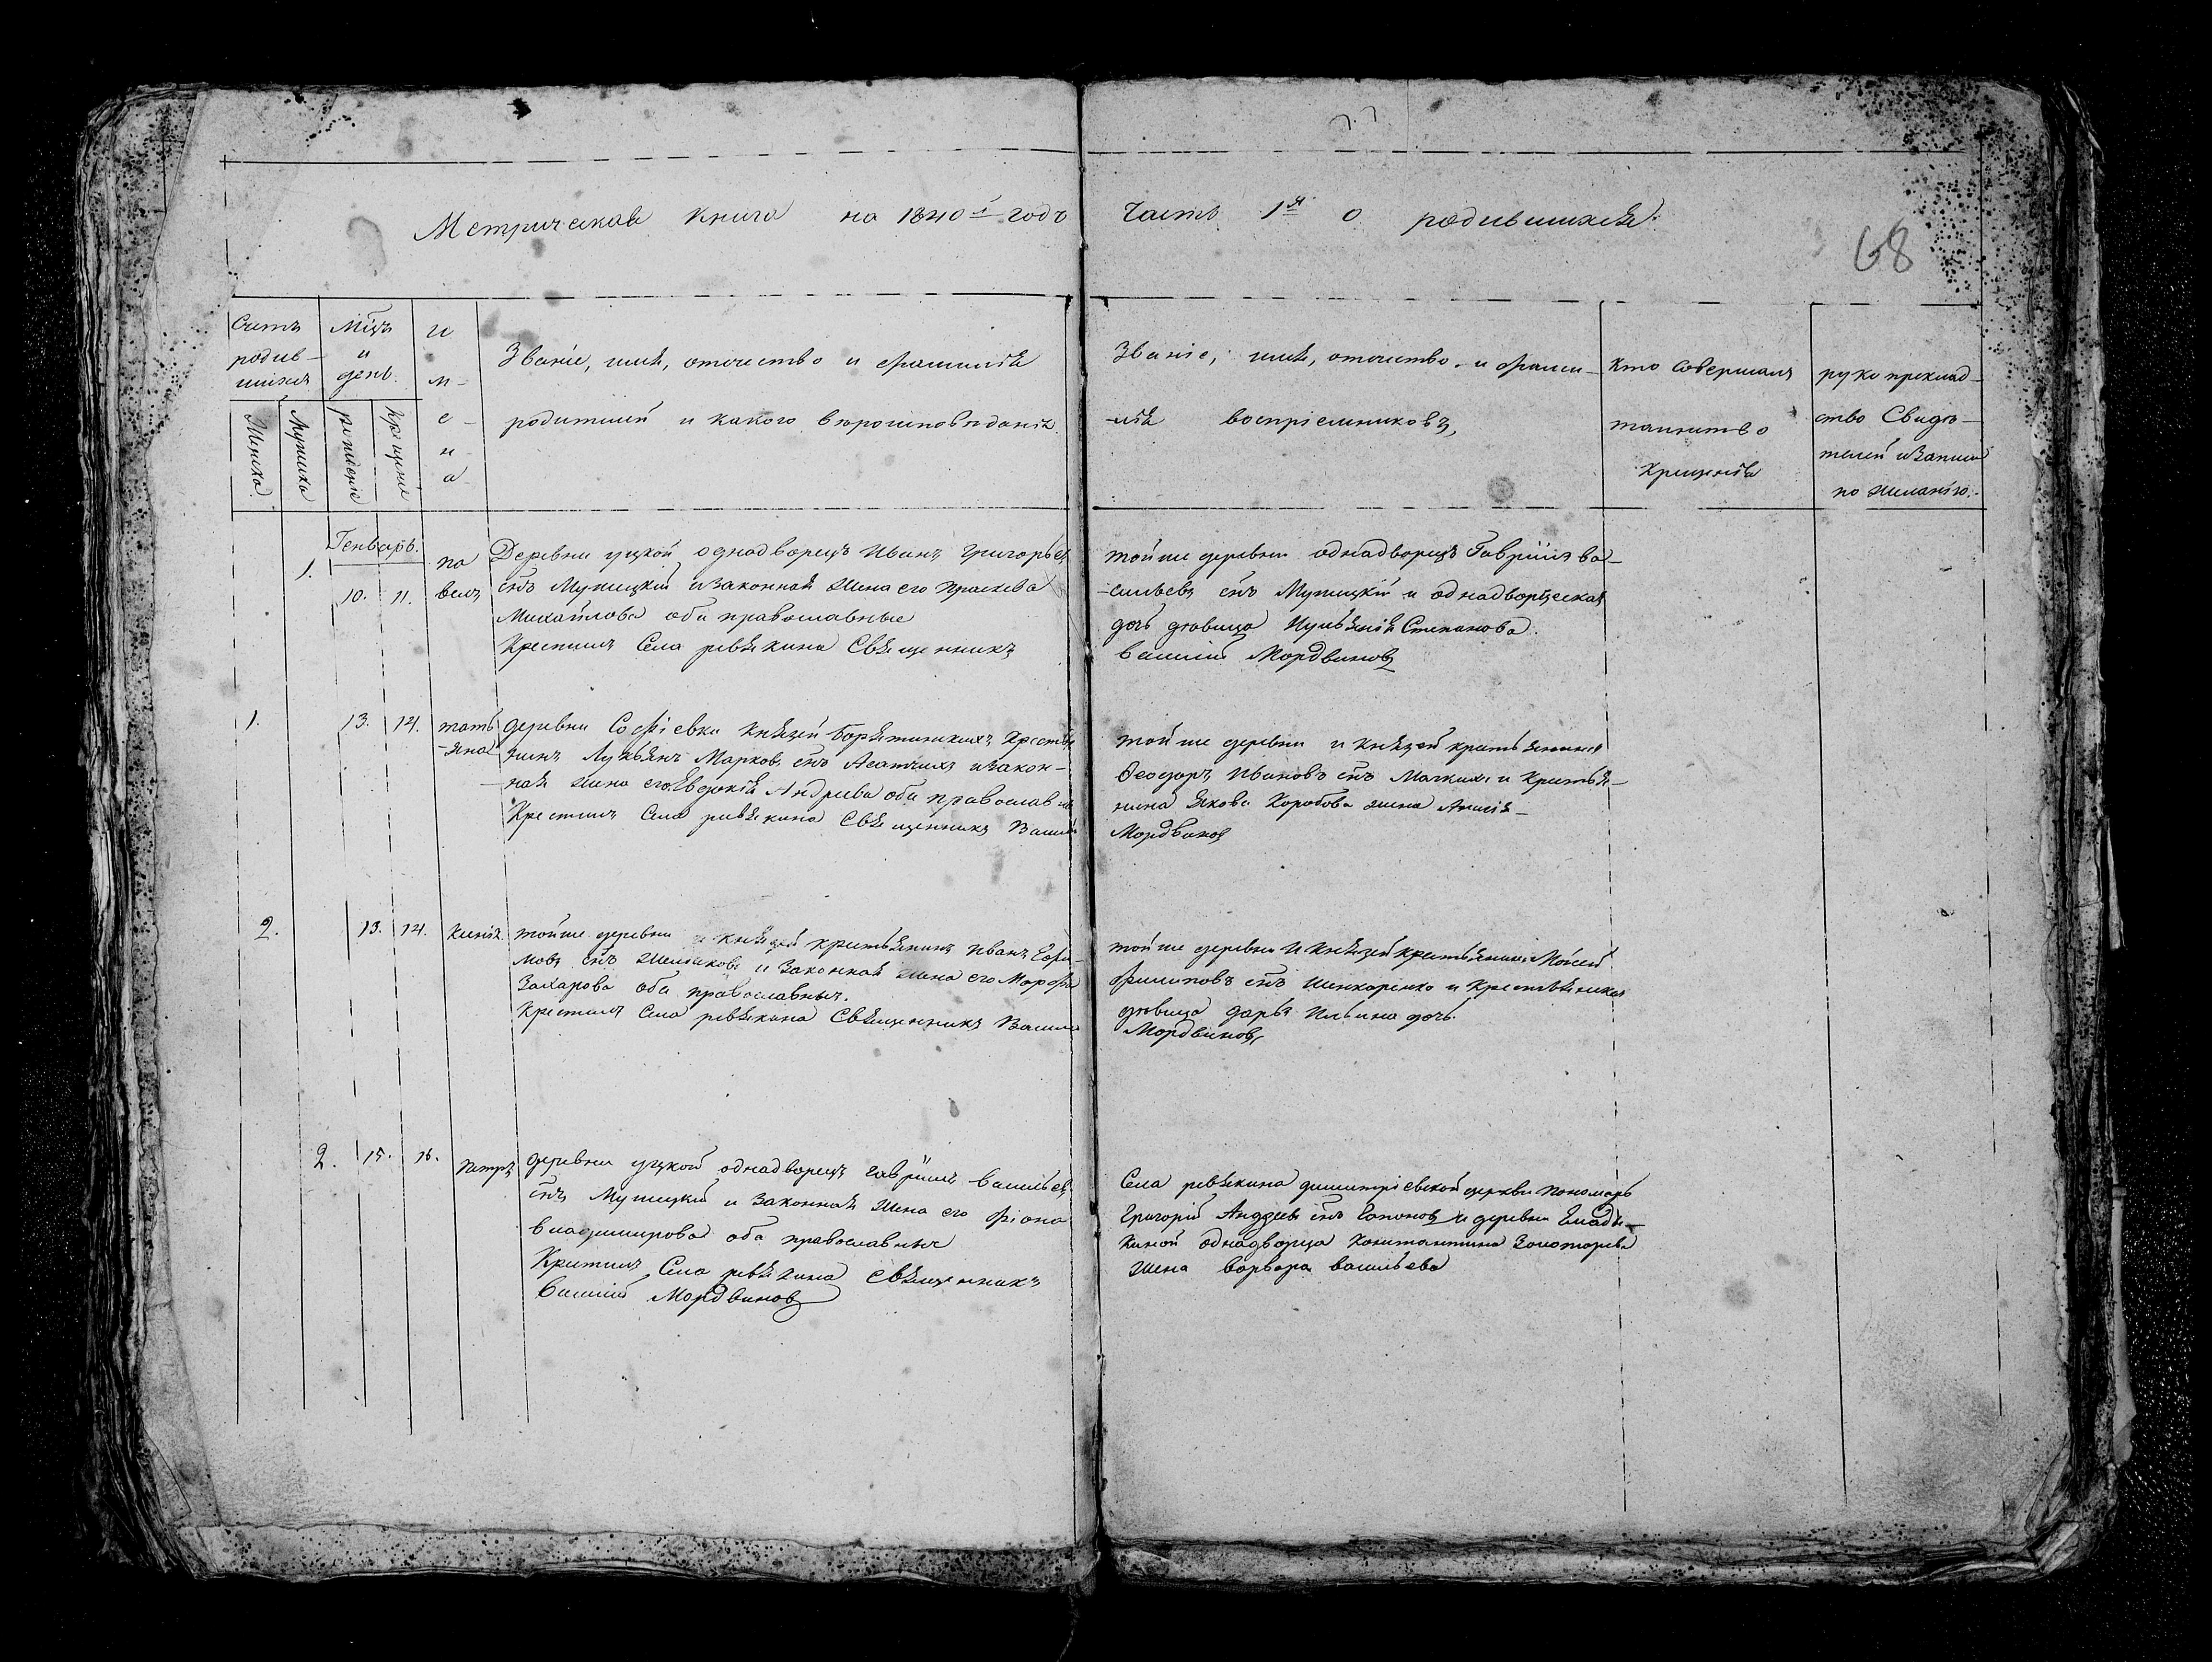 Метрическая книга на 1840й годъ
Часть 1я о родившихся.
68
Счетъ родив-шихся
Мѣцъ и день.
И м е н а
Званіе, имя, отчество и фамилія
родителей и какого вѣроисповѣданія.
Званіе, имя, отчество, и фами-
лія воспріемниковъ,
Кто совершалъ
таинство
Крещенія
рукоприклад-
ство Свидѣ-
телей изаписи
по желанію.
Женска
Мужска
рожденіе
Крещеніе
Генварь.
1. 10. 11. павелъ
Деревни уцкой однадворецъ Иванъ Григорьев
снъ Мупецкій изаконная жена его Праскева
Михайлова оба православные
Крестилъ Села ревякина Священникъ
тойже деревни однадворецъ Гавріилъ ва-
сильевъ снъ Мупецкій и однадворческая
дочь дѣвица Степанова.
василій Мордвиновъ
1. 13. 14. тать-яна
деревни Софіевки Князей Борятинскихъ Кресть
нинъ Лукьянъ Марковъ снъ изакон-
ная жена его Евдокія Андреева оба православн
Крестилъ Села ревякина Священникъ Васили
тойже деревни и князей крестьянинъ
Феодоръ Ивановъ снъ и Крестья-
нина Якова Коробова жена
Мордвиновъ
2. 13. 14. Ксенія.
тойже деревни и князей крестьянинъ Иванъ Ефи-
мовъ снъ и Законная жена его Марфа
Захарова оба православныя.
Крестилъ Села ревякина Священникъ Васили
тойже деревни и князей крестьянинъ Мойсей
Филиповъ снъ Шинкаренко и Крестьянская
дѣвица дарья Ильина дочь.
Мордвиновъ
2. 15. 16. Петръ
деревни уцкой однадворецъ гавріилъ васильев
снъ Мупецкій и Законная жена его
владимирова оба православныя
Крестилъ Села ревякина Священникъ
василій Мордвиновъ
Села ревякина димитріевской церкви пономарь
Григорій Андреевъ снъ и деревни
однадворца Константина Золоторева
жена варвара васильева